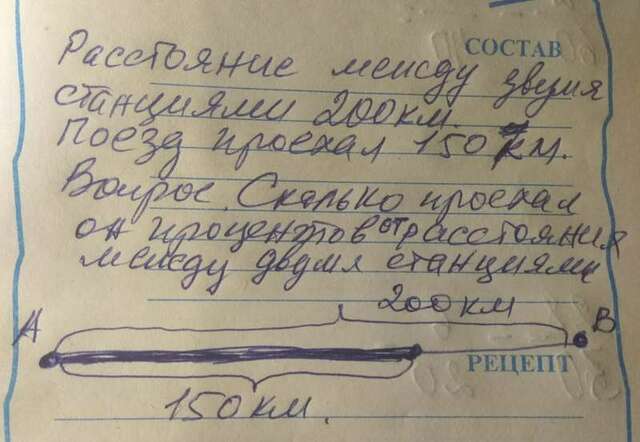 СОСТАВ
Расстояние между двумя
станциями 200км
Поезд проехал 150 км.
Вопрос. Сколько проехал
он процентов от расстояния
между двумя станциями
200км
А
В
РЕЦЕПТ
150км.